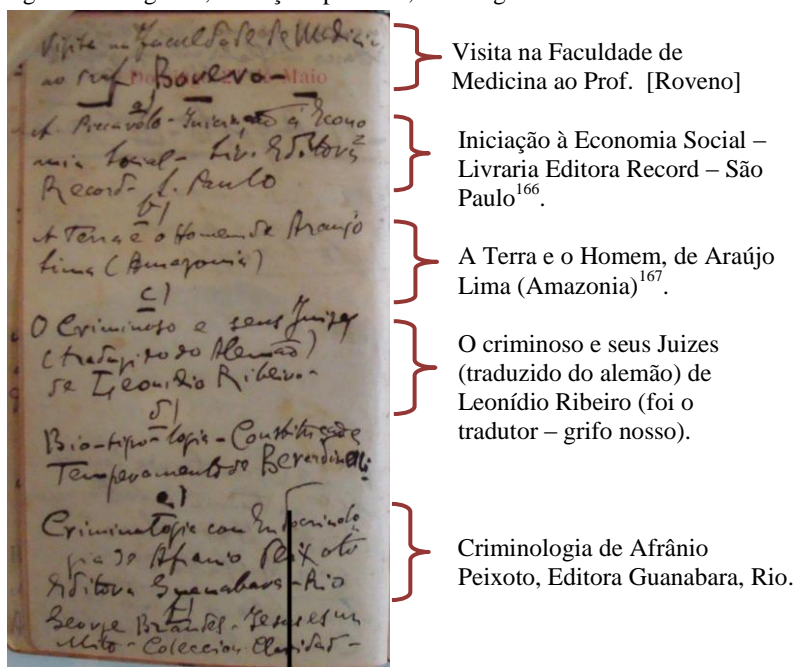 Visita na Faculdade de Medicina
ao Prof. Bovero-
Maio
a)
A. Precavolo - Iniciação á Econo
mia Social - Liv. Editora
Record - S. Paulo
b)
A Terra e o Homem de Araujo
Lima (Amazonia)
c)
O Criminoso e seus Juizes
(traduzido do Alemão)
de Leonidio Ribeiro-
d)
Bio-tipo-logia - Constituição e
Temperamento de Berardinelli
e)
Criminologia com Endocrinolo
gia de Afranio Peixoto
Editora Guanabara - Rio
f)
George Brandes - Jesus es un
Mito - Coleccion Claridad -
Visita na Faculdade de
Medicina ao Prof. [Roveno]
Iniciação à Economia Social –
Livraria Editora Record – São
Paulo166.
A Terra e o Homem, de Araújo
Lima (Amazonia)167.
O criminoso e seus Juizes
(traduzido do alemão) de
Leonídio Ribeiro (foi o
tradutor – grifo nosso).
Criminologia de Afrânio
Peixoto, Editora Guanabara, Rio.